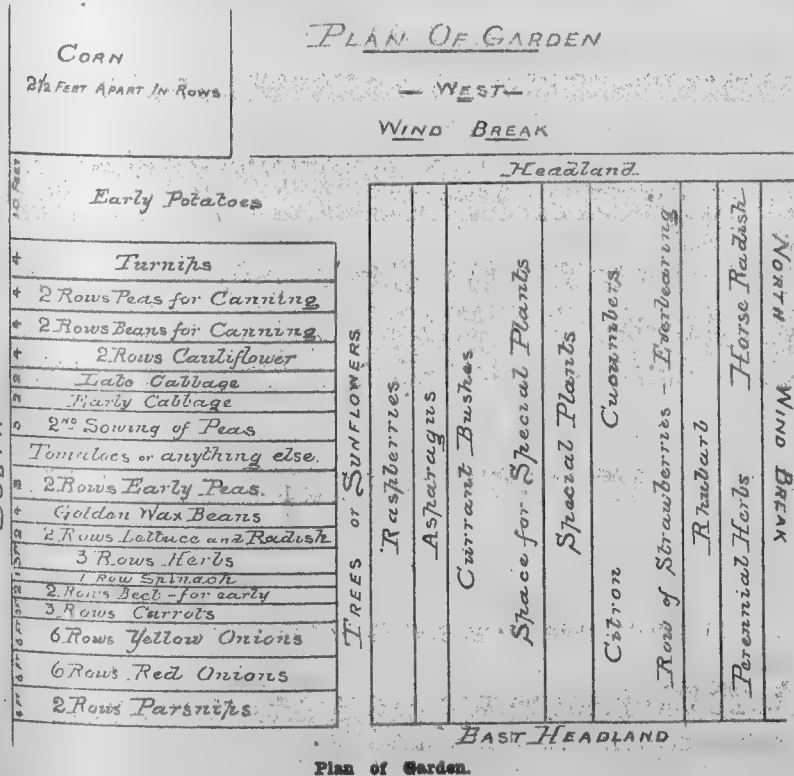 PLAN OF GARDEN
CORN
2½ FEET APART IN ROWS
— WEST —
WIND BREAK
Headland
10 FEET
Early Potatoes
4 Turnips
4 2 Rows Peas for Canning
4 2 Rows Beans for Canning
4 2 Rows Cauliflower
2 Late Cabbage
2 Early Cabbage
3 2ND Sowing of Peas
Tomatoes or anything else.
3 2 Rows Early Peas.
4 Golden Wax Beans
2 2 Rows Lettuce and Radish
3 FT 3 Rows Herbs
1 1 Row Spinach
2 2 Rows Beet - for early
3 FT 3 Rows Carrots
6 FT 6 Rows Yellow Onions
6 FT 6 Rows Red Onions
4 FT 2 Rows Parsnips
TREES or SUNFLOWERS
Raspberries
Asparagus
Currant Bushes
Space for Special Plants
Special Plants
Citron Cucumbers
Row of Strawberries - Everbearing
Rhubarb
Perennial Herbs Horse Radish
NORTH WIND BREAK
EAST HEADLAND
Plan of Garden.